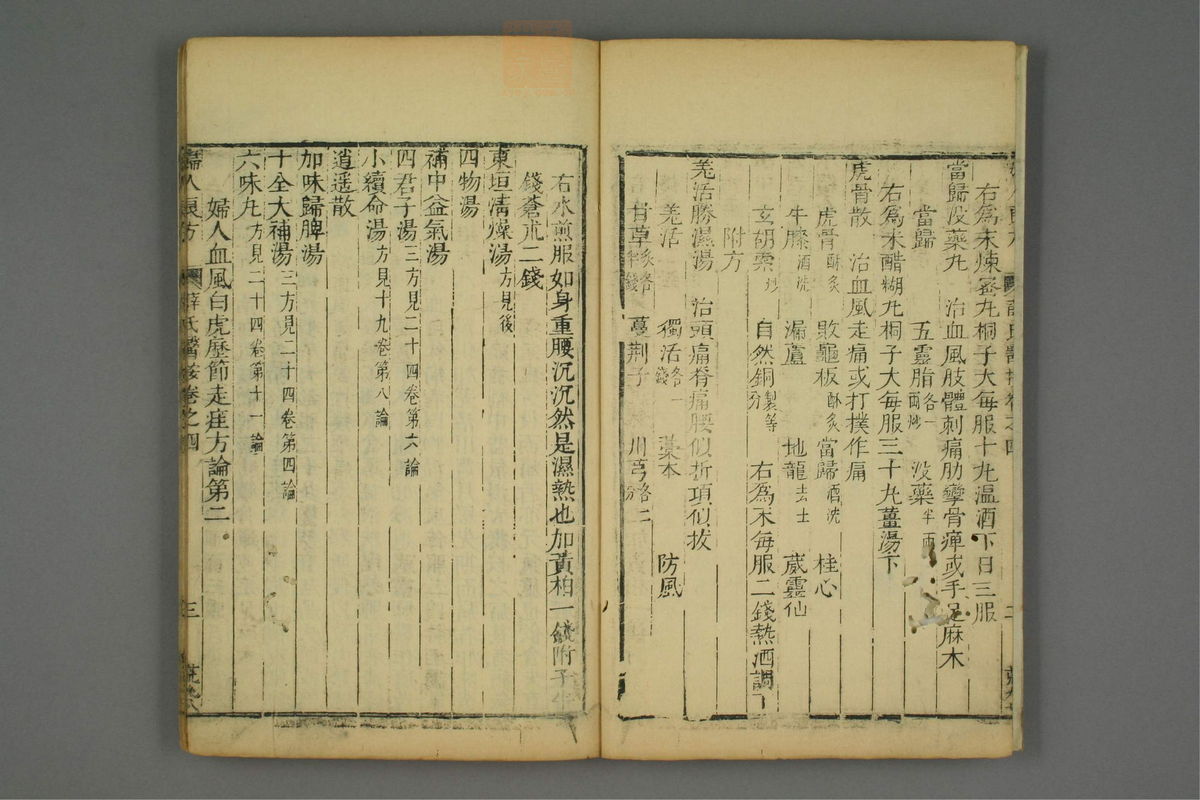 右爲末煉蜜丸桐子大每服十丸温酒下日三服
當歸没藥丸 治血風肢體刺痛肋攣骨痺或手足麻木
當歸 五靈脂各一兩炒 没藥半兩
右爲末醋糊丸桐子大每服三十丸薑湯下
虎骨散 治血風走痛或打撲作痛
虎骨酥炙 敗龜板酥炙 當歸酒洗 桂心
牛膝酒洗 漏蘆 地龍去土 葳靈仙
玄胡索炒 自然銅製等分 右爲末每服二錢熱酒調下
附方
羌活勝濕湯 治頭痛脊痛腰似折項似拔
羌活 獨活各一錢 藁本 防風
甘草炙各半錢 蔓荆子 川芎各二分
右水煎服如身重腰沉沉然是濕熱也加黄柏一錢附子半
錢蒼朮二錢
東垣清燥湯方見後
四物湯
補中益氣湯
四君子湯三方見二十四卷第六論
小續命湯方見十九卷第八論
逍遥散
加味歸脾湯
十全大補湯三方見二十四卷第四論
六味丸方見二十四卷第十一論
婦人血風白虎歷節走疰方論第二
婦人良方 薛氏醫按卷之四 三